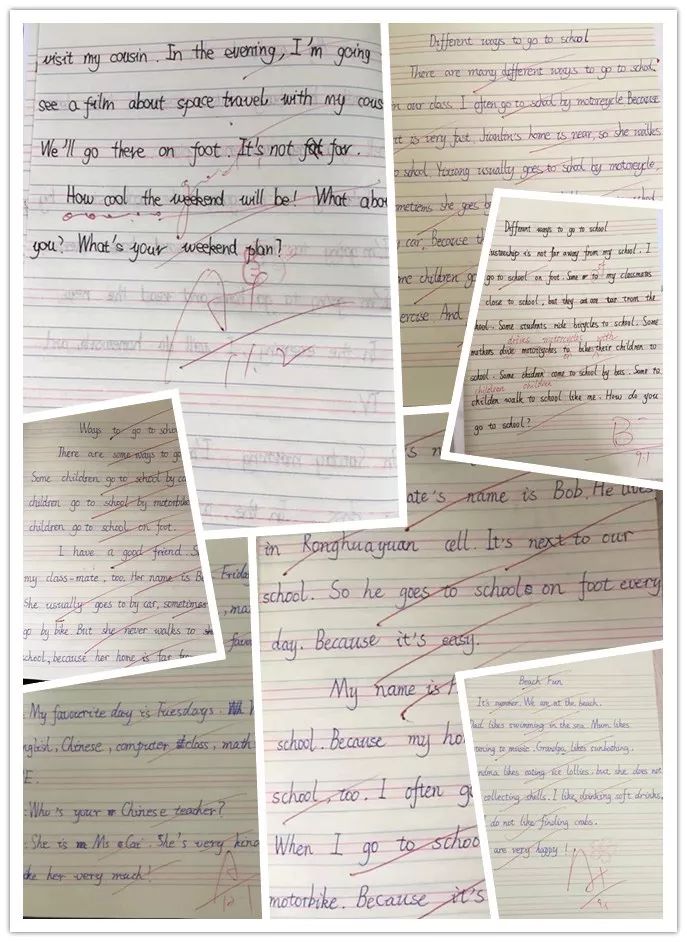 visit my cousin. In the evening, I'm going
see a film about space travel with my cous
We'll go there on foot. It's not far.
How cool the weekend will be! What abou
you? What's your weekend plan?
Different ways to go to school
There are many different ways to go to school.
in our class. I often go to school by motorcycle Because
it is very fast. home is near, so she walks
o school. usually goes to school by motorcycle,
she goes by
y car. Because th
me children go
ercise. And
Different ways to go to school
is not far away from my school. I
go to school on foot. Some of my classmates
close to school, but they are far from the
hool. Some students ride bicycles to school. Some
drives motorcycles with
mothers drive motorcycles to their children to
school. Some children come to school by bus. Some to
children children
childen walk to school like me. How do you
go to school?
B
9.1
Ways to go to schoo
There are some ways to go
Some children go to school by ca
children go to school by motorbike
children go to school on foot.
I have a good friend. S
my class-mate, too. Her name is Be
She usually goes to by car, sometimes
go by bike. But she never walks to
school, because her home is far
Friday
, ma
favou
My favourite day is Tuesdays.
nglish, Chinese, computer class, math
E.
Who's your Chinese teacher?
She is Ms Cai. She's very kind
ke her very much!
A
ate's name is Bob. He lives
in Ronghuayuan cell. It's next to our
school. So he goes to school on foot every
day. Because it's easy.
My name is
school. Because my ho
school, too. I often go
When I go to schoo
motorbike. Because it's
Beach Fun
It's summer. We are at the beach.
Dad likes swimming in the sea. Mum likes
tening to music. Grandpa likes sunbathing.
andma likes eating ice lollies, but she does not
collecting shells. I like drinking soft drinks.
I do not like finding crabs.
are very happy!
A+